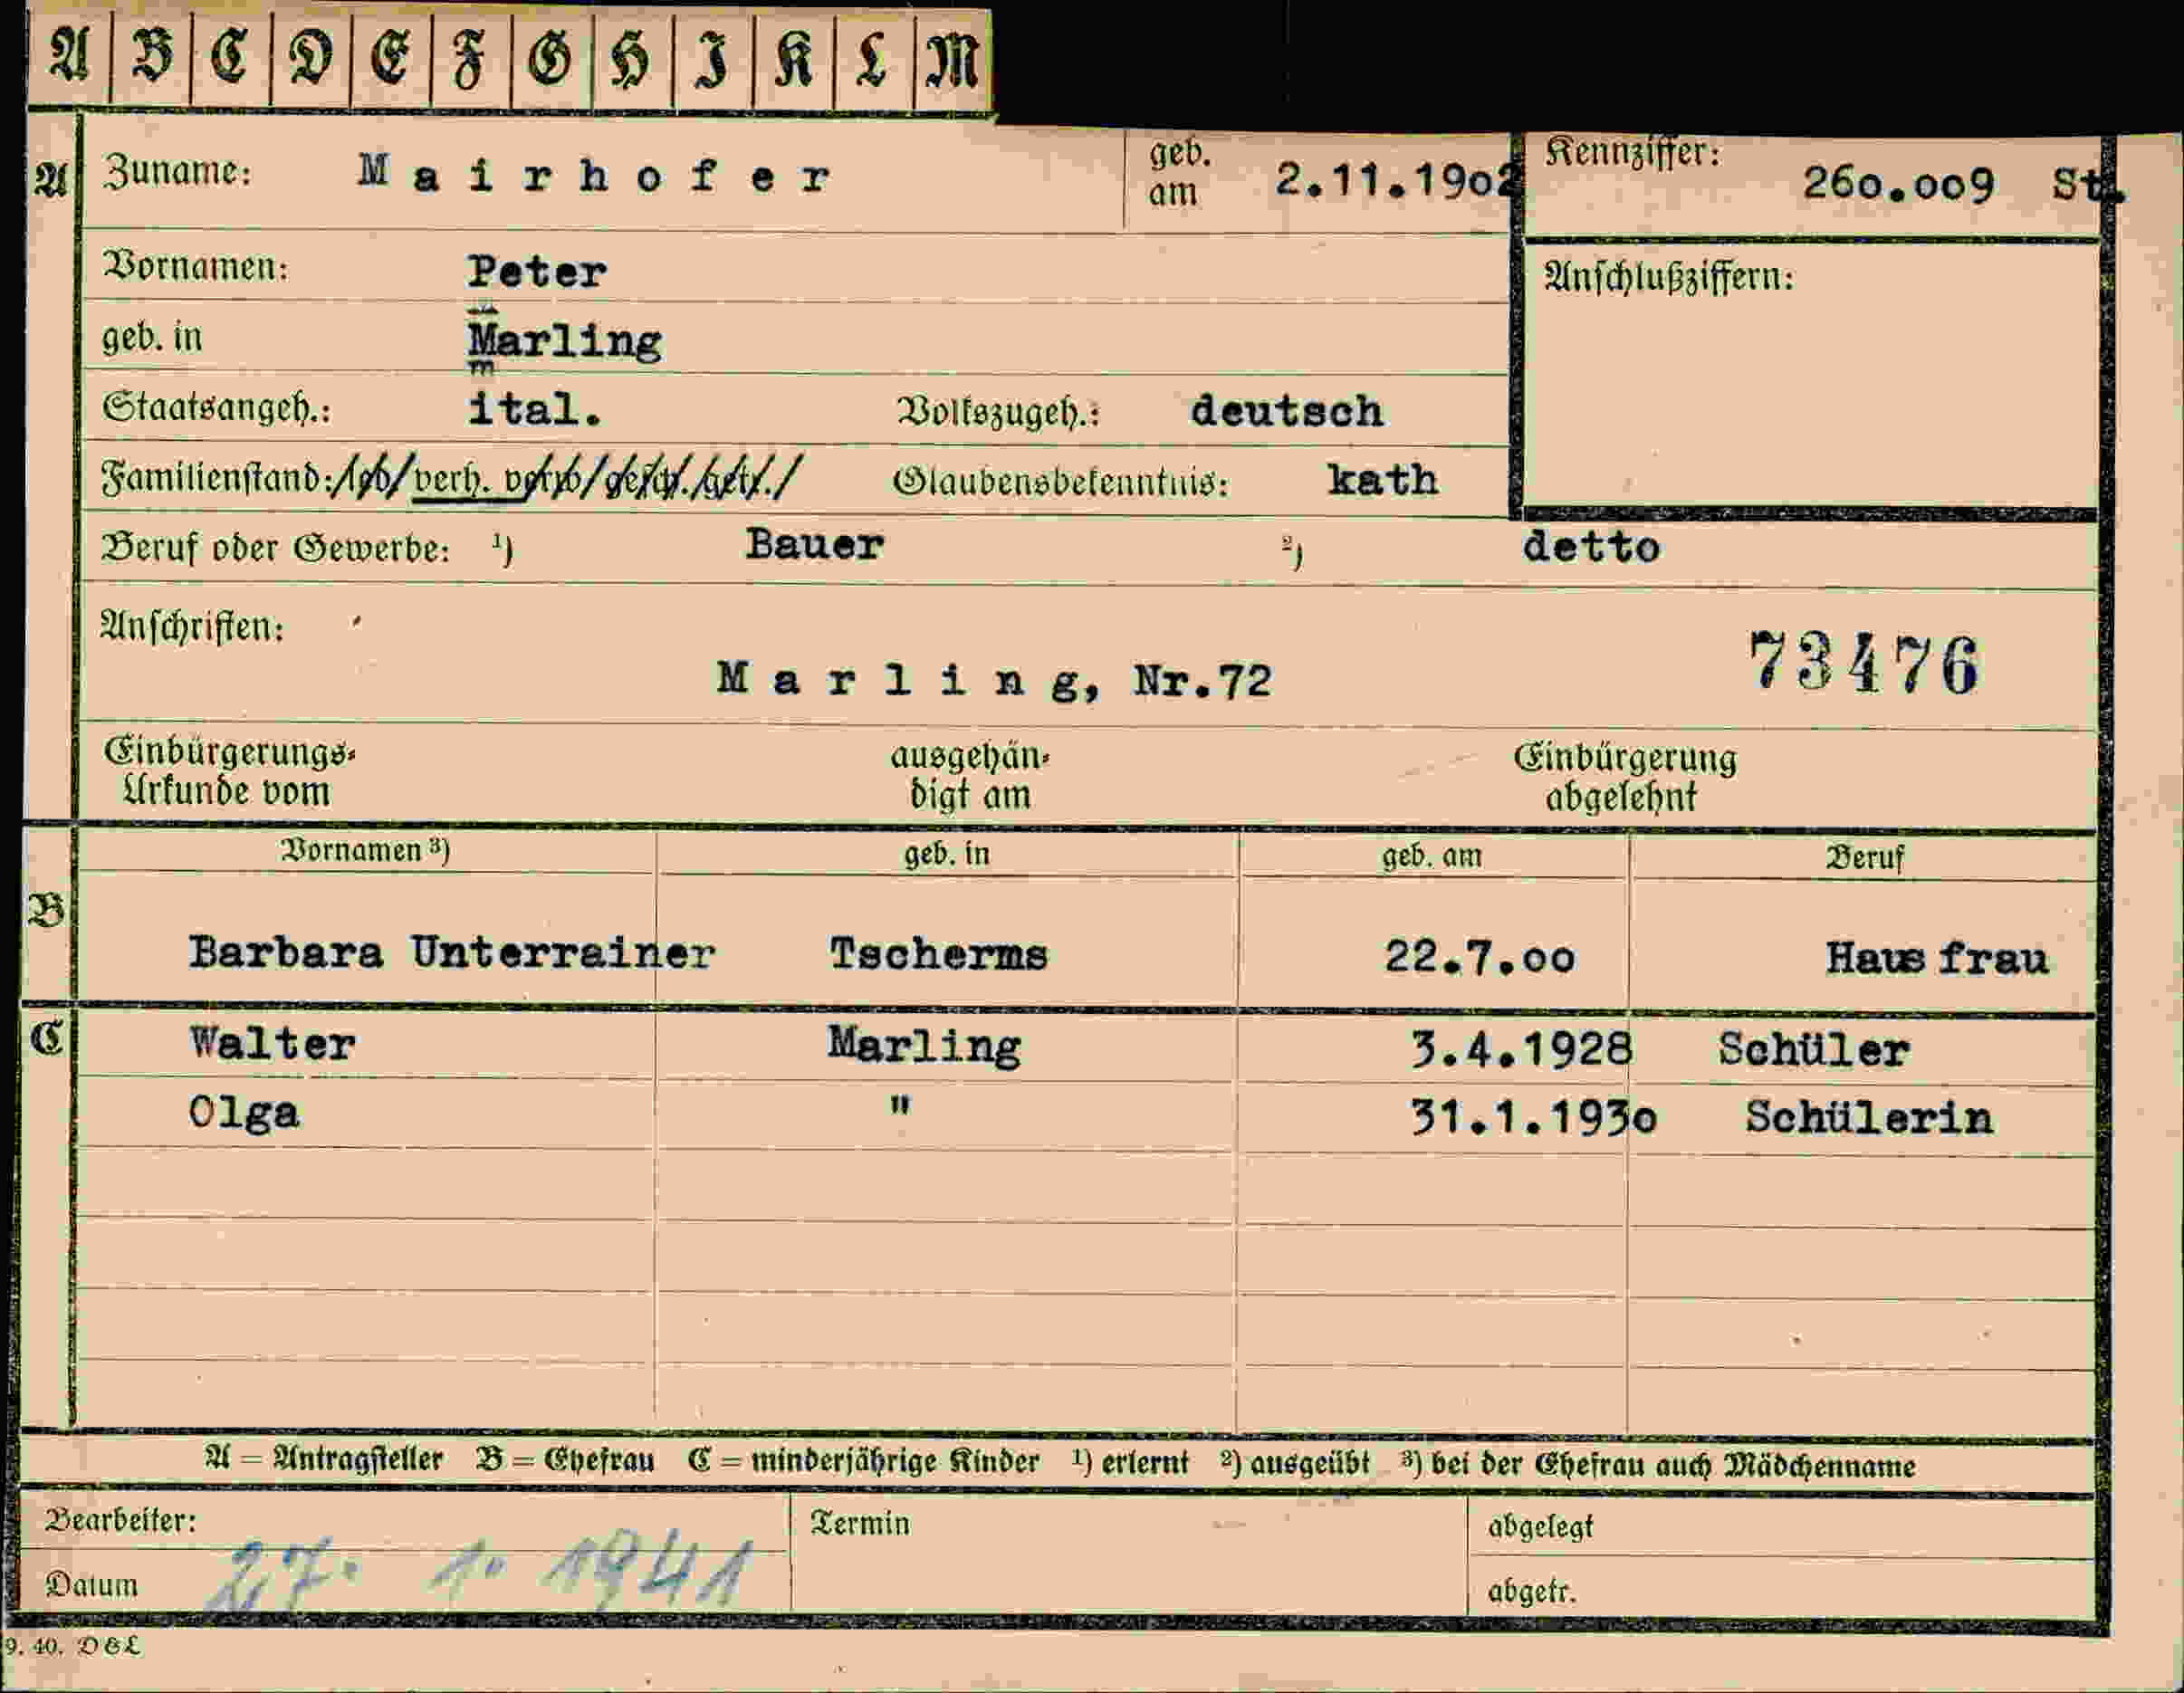 A B C D E F G H I K L M
A Zuname: Mairhofer geb. am 2.11.1902 Kennziffer: 260.009 St.
Vornamen: Peter Anschlußziffern:
geb. in Marling
m
Staatsangeh.: ital. Volkszugeh.: deutsch
Familienstand: led/verh. verw/gesch./getr./ Glaubensbekenntnis: kath
Beruf oder Gewerbe: ¹) Bauer ²) detto
Anschriften:
Marling, Nr.72 73476
Einbürgerungs- ausgehän- Einbürgerung
Urkunde vom digt am abgelehnt
Vornamen ³) geb. in geb. am Beruf
B
Barbara Unterrainer Tscherms 22.7.00 Hausfrau
C Walter Marling 3.4.1928 Schüler
Olga " 31.1.1930 Schülerin
A = Antragsteller B = Ehefrau C = minderjährige Kinder ¹) erlernt ²) ausgeübt ³) bei der Ehefrau auch Mädchenname
Bearbeiter: Termin abgelegt
Datum 27. 1. 1941 abgetr.
9. 40. D&L